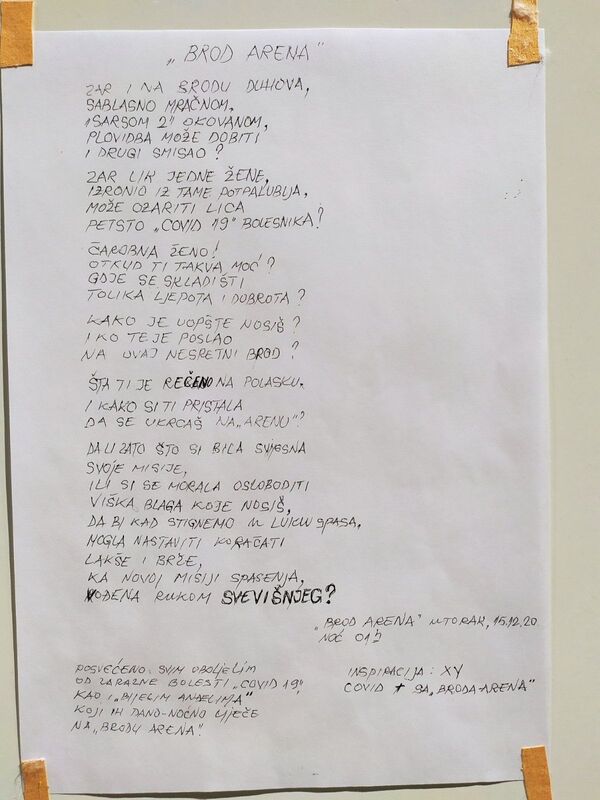 „BROD ARENA"
ZAR I NA BRODU DUHOVA,
SABLASNO MRAČNOM,
"SARSOM 2" OKOVANOM,
PLOVIDBA MOŽE DOBITI
I DRUGI SMISAO?
ZAR LIK JEDNE ŽENE,
IZRONIO IZ TAME POTPALUBLJA,
MOŽE OZARITI LICA
PETSTO „COVID 19" BOLESNIKA?
ČAROBNA ŽENO!
OTKUD TI TAKVA MOĆ?
GDJE SE SKLADIŠTI
TOLIKA LJEPOTA I DOBROTA?
KAKO JE UOPŠTE NOSIŠ?
I KO TE JE POSLAO
NA OVAJ NESRETNI BROD?
ŠTA TI JE REČENO NA POLASKU.
I KAKO SI TI PRISTALA
DA SE UKRCAŠ NA „ARENU"?
DA LI ZATO ŠTO SI BILA SVJESNA
SVOJE MISIJE,
ILI SI SE MORALA OSLOBODITI
VIŠKA BLAGA KOJE NOSIŠ,
DA BI KAD STIGNEMO U LUKU SPASA,
MOGLA NASTAVITI KORAČATI
LAKŠE I BRŽE,
KA NOVOJ MISIJI SPASENJA,
VOĐENA RUKOM SVEVIŠNJEG?
„BROD ARENA" UTORAK, 15.12.20
NOĆ
POSVEĆENO: SVIM OBOLJELIM
OD ZARAZNE BOLESTI „COVID 19",
KAO I „BIJELIM ANĐELIMA"
KOJI IH DANO-NOĆNO LIJEČE
NA „BRODU ARENA".
INSPIRACIJA: XY
COVID + SA „BRODA-ARENA"